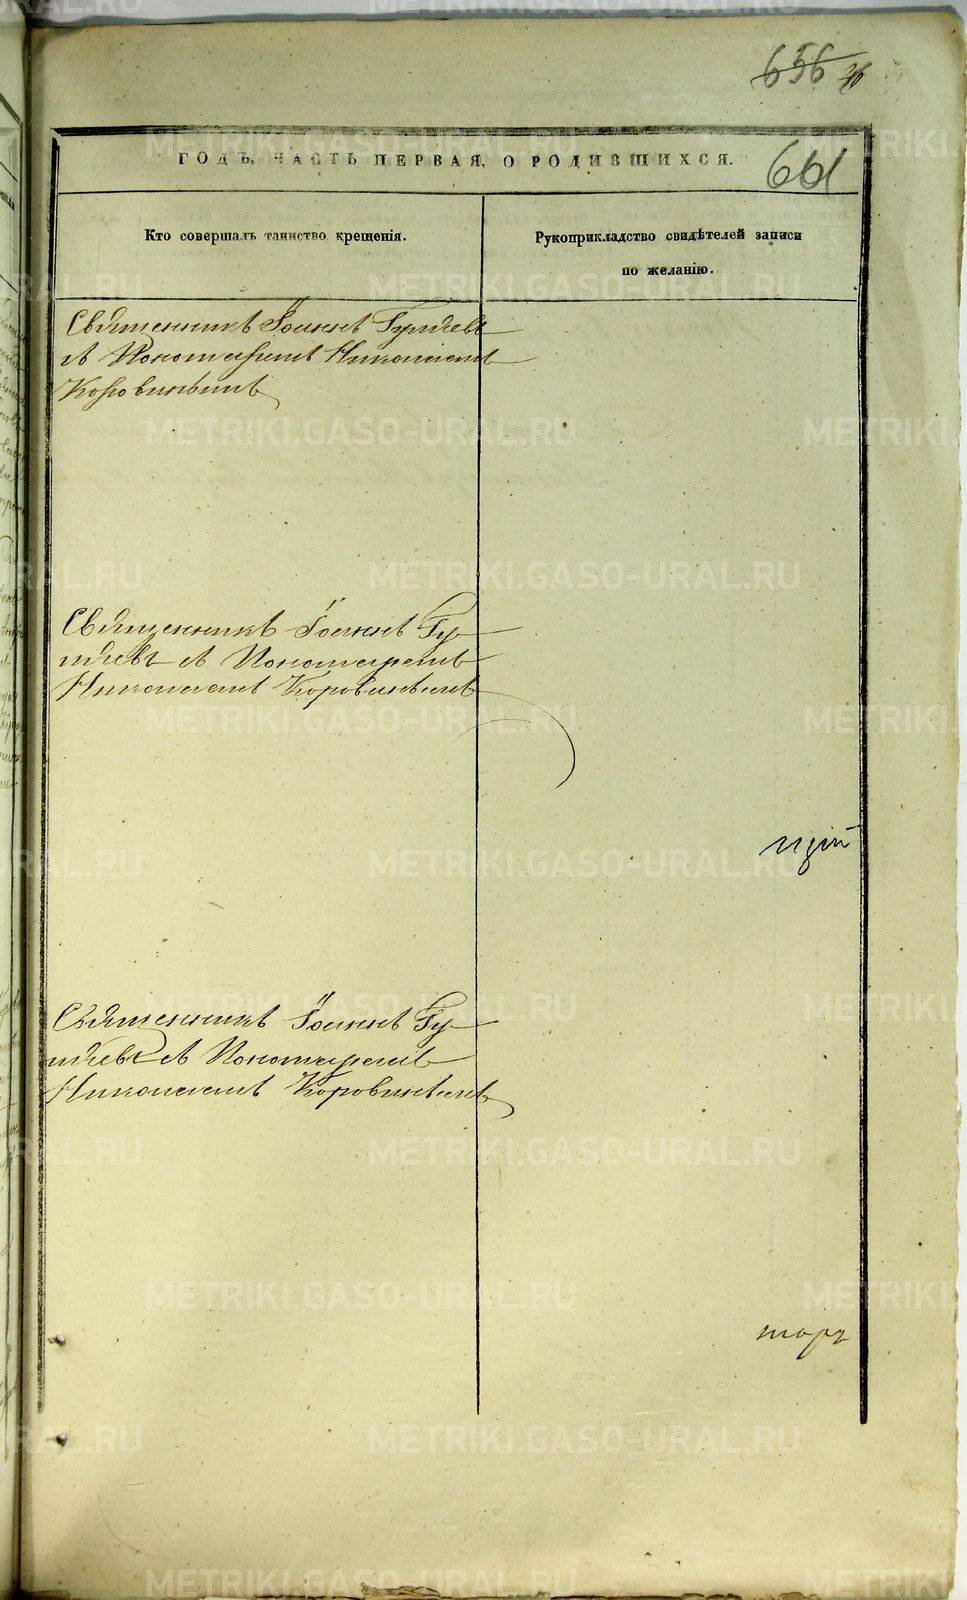 656 26
ГОДЪ, ЧАСТЬ ПЕРВАЯ, О РОДИВШИХСЯ.
661
Кто совершалъ таинство крещенія.
Рукоприкладство свидѣтелей записи
по желанію.
Священникъ Іоаннъ
съ Пономаремъ Николаемъ
Коровинымъ
Священникъ Іоаннъ
съ Пономаремъ
Николаемъ Коровинымъ
Священникъ Іоаннъ
съ Пономаремъ
Николаемъ Коровинымъ
METRIKI.GASO-URAL.RU